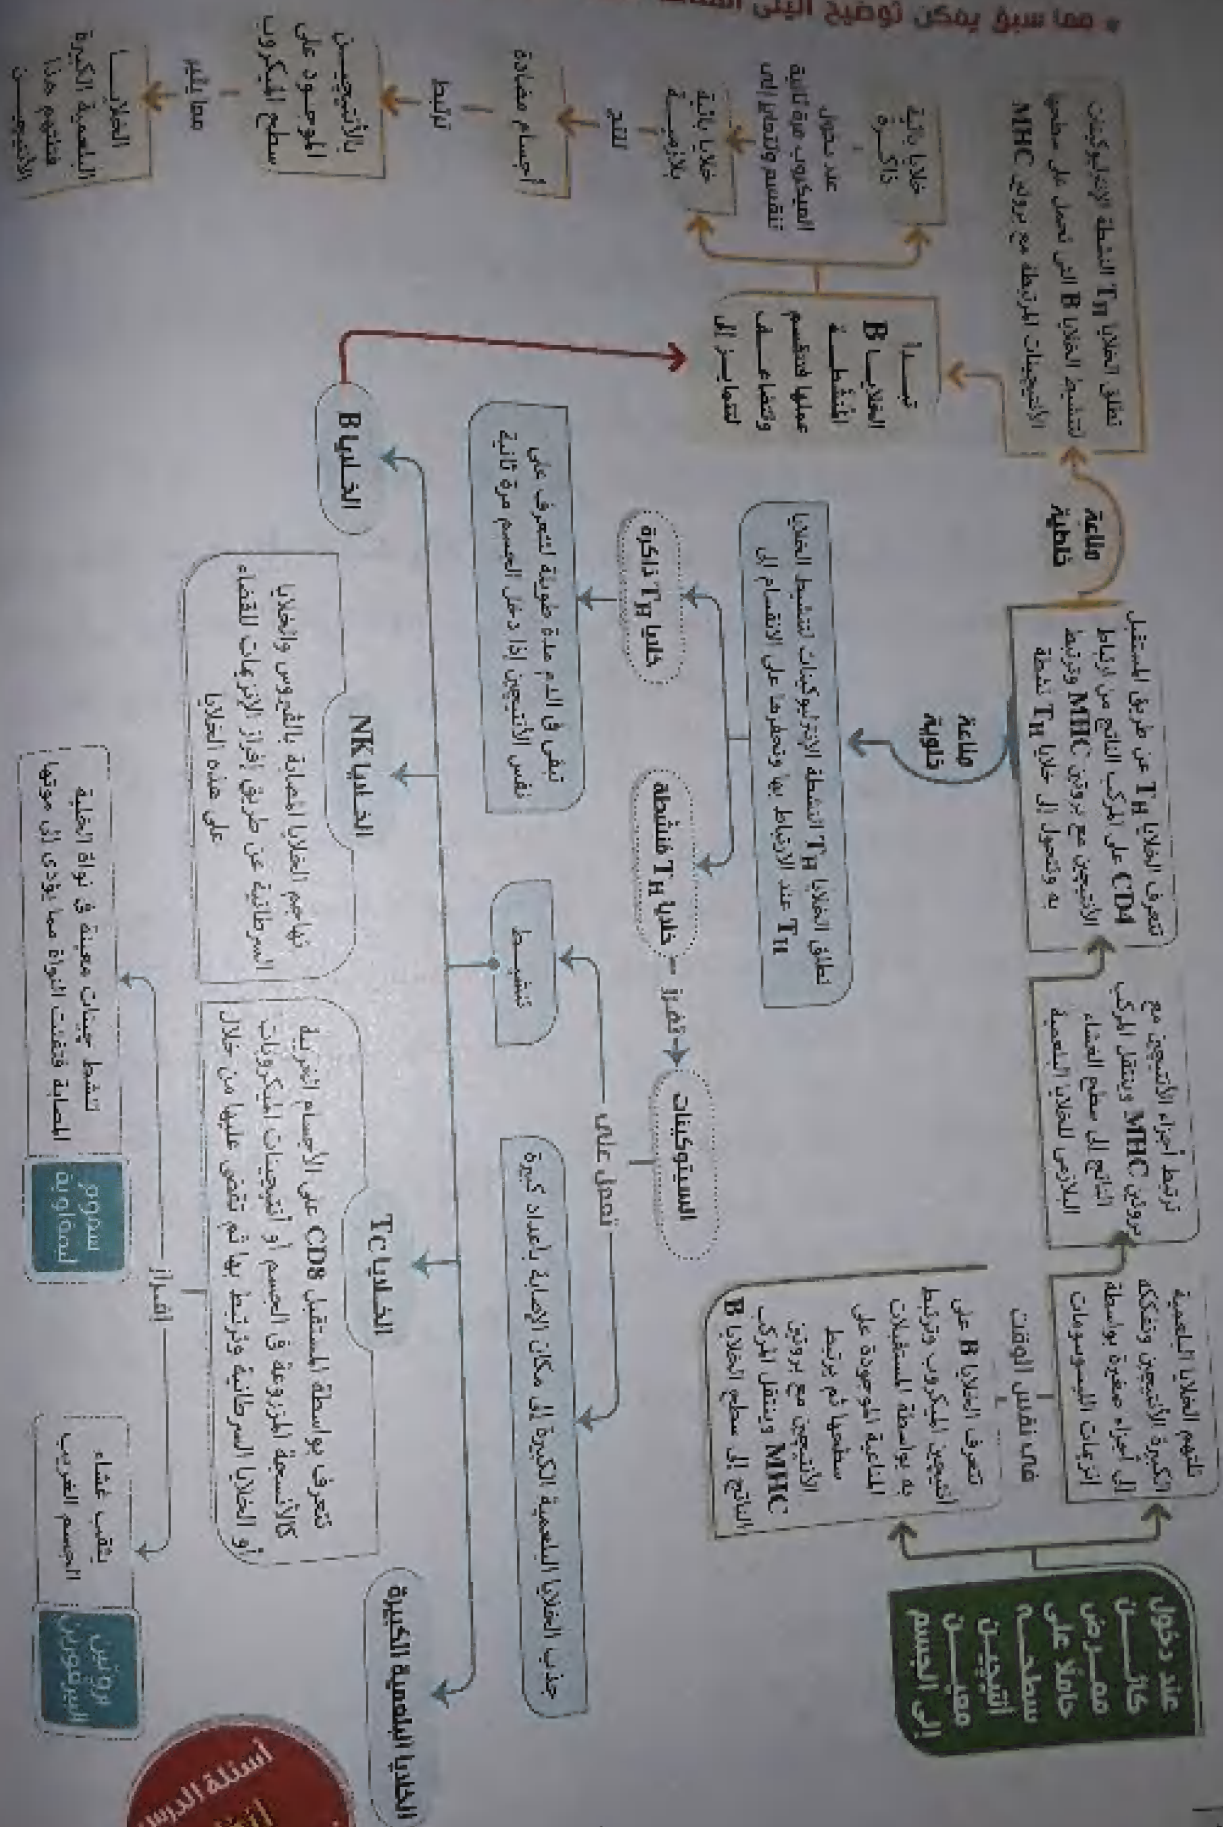 • مما سبق يمكن توضيح آليتى المناعة
عند دخول
كائــــن
ممــرض
حاملًا على
سطحــه
أنتيجيــن
معيـــن
إلى الجسم
تلتهم الخلايا البلعمية
الكبيرة الأنتيجين وتفككه
إلى أجزاء صغيرة بواسطة
إنزيمات الليسوسومات
فى نفس الوقت
تتعرف الخلايا B على
أنتيجين الميكروب وترتبط
به بواسطة المستقبلات
المناعية الموجودة على
سطحها ثم يرتبط
الأنتيجين مع بروتين
MHC وينتقل المركب
الناتج إلى سطح الخلايا B
ترتبط أجزاء الأنتيجين مع
بروتين MHC وينتقل المركب
الناتج إلى سطح الغشاء
البلازمى للخلايا البلعمية
تتعرف الخلايا TH عن طريق المستقبل
CD4 على المركب الناتج من ارتباط
الأنتيجين مع بروتين MHC وترتبط
به وتتحول إلى خلايا TH نشطة
مناعة
خلطية
تطلق الخلايا TH النشطة الإنترليوكينات
لتنشيط الخلايا B التى تحمل على سطحها
الأنتيجينات المرتبطة مع بروتين MHC
تبــدأ
الخلايــا B
المُنشَّطــة
عملها فتنقسم
وتتضاعــف
لتتمايــز إلى
خلايا بائية
ذاكــرة
عند دخول
الميكروب مرة ثانية
تنقسم وتتمايز إلى
خلايا بائية
بلازميــة
تنتج
أجسام مضادة
ترتبط
بالأنتيجيــن
الموجــود على
سطح الميكروب
مما يثير
الخلايــا
البلعمية الكبيرة
فتلتهم هذا
الأنتيجيــن
مناعة
خلوية
تطلق الخلايا TH النشطة الإنترليوكينات لتنشيط الخلايا
TH عند الارتباط بها وتحفزها على الانقسام إلى
خلايا TH ذاكرة
تبقى فى الدم مدة طويلة لتتعرف على
نفس الأنتيجين إذا دخل الجسم مرة ثانية
خلايا TH مُنشَّطة
تفرز
السيتوكينات
تعمل على
تنشيــط
جذب الخلايا البلعمية الكبيرة إلى مكان الإصابة بأعداد كبيرة
الخلايا B
الخلايا NK
تهاجم الخلايا المصابة بالفيروس والخلايا
السرطانية عن طريق إفراز الإنزيمات للقضاء
على هذه الخلايا
الخلايا TC
تتعرف بواسطة المستقبل CD8 على الأجسام الغريبة
كالأنسجة المزروعة فى الجسم أو أنتيجينات الميكروبات
أو الخلايا السرطانية وترتبط بها ثم تقضى عليها من خلال
الخلايا البلعمية الكبيرة
إفــراز
بروتين
البيرفورين
يثقب غشاء
الجسم الغريب
سموم
ليمفاوية
تنشط جينات معينة فى نواة الخلية
المصابة فتفتت النواة مما يؤدى إلى موتها
أسئلة الدرس